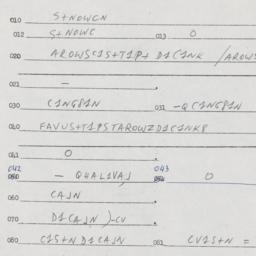 010 S+NOWCN
012 S+NOWC 013 O
020 AROWSC1S+T1P+ D1C1NK /AROWS
021 -
030 C1NG81N 031 -QC1NG81N
040 FAVUS+T1PSTAROWZD1C1NK8
041 O
042 - QUAL1VAJ 043 O
060 CAJN
070 D1CAJN)-CV
080 C1S+N D1CAJN 081 CV1S+N =